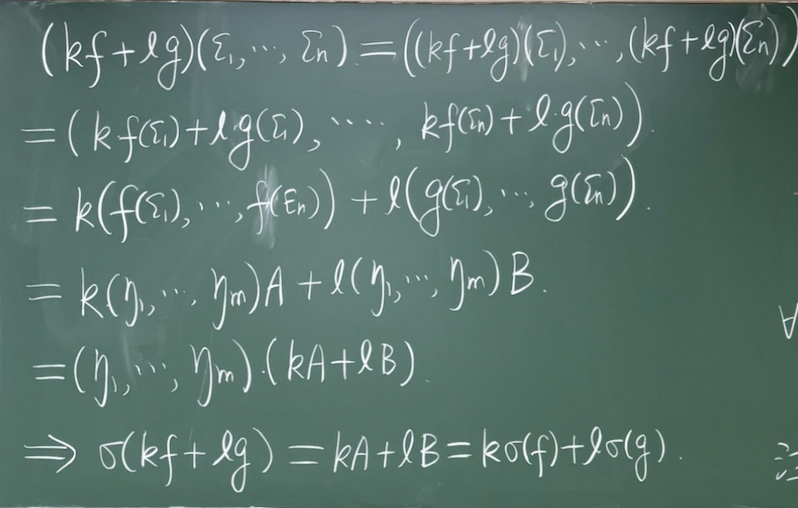 (kf+lg)(ε₁,⋯,εₙ)=((kf+lg)(ε₁),⋯,(kf+lg)(εₙ))
=(kf(ε₁)+l·g(ε₁),⋯⋯,kf(εₙ)+l·g(εₙ)).
=k(f(ε₁),⋯,f(εₙ))+l(g(ε₁),⋯,g(εₙ)).
=k(η₁,⋯,ηₘ)A+l(η₁,⋯,ηₘ)B.
=(η₁,⋯,ηₘ)·(kA+lB).
⇒σ(kf+lg)=kA+lB=kσ(f)+lσ(g).